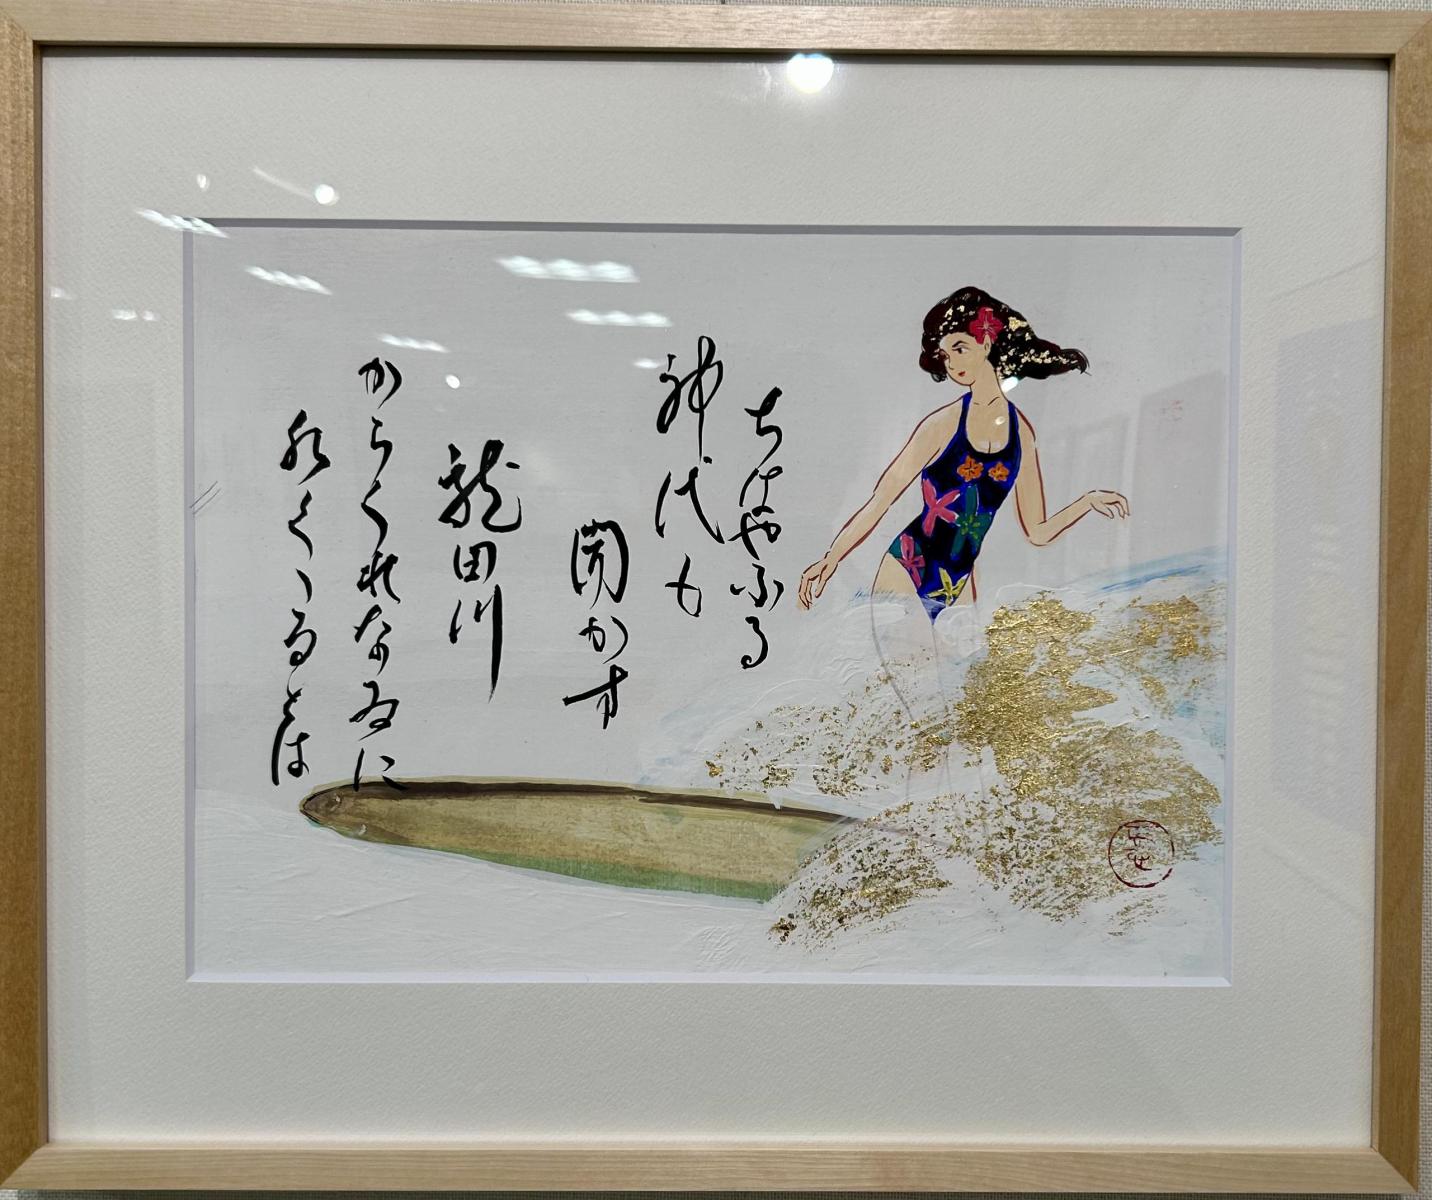 ちはやふる
神代も
聞かす
龍田川
からくれなゐに
水くゝるとは